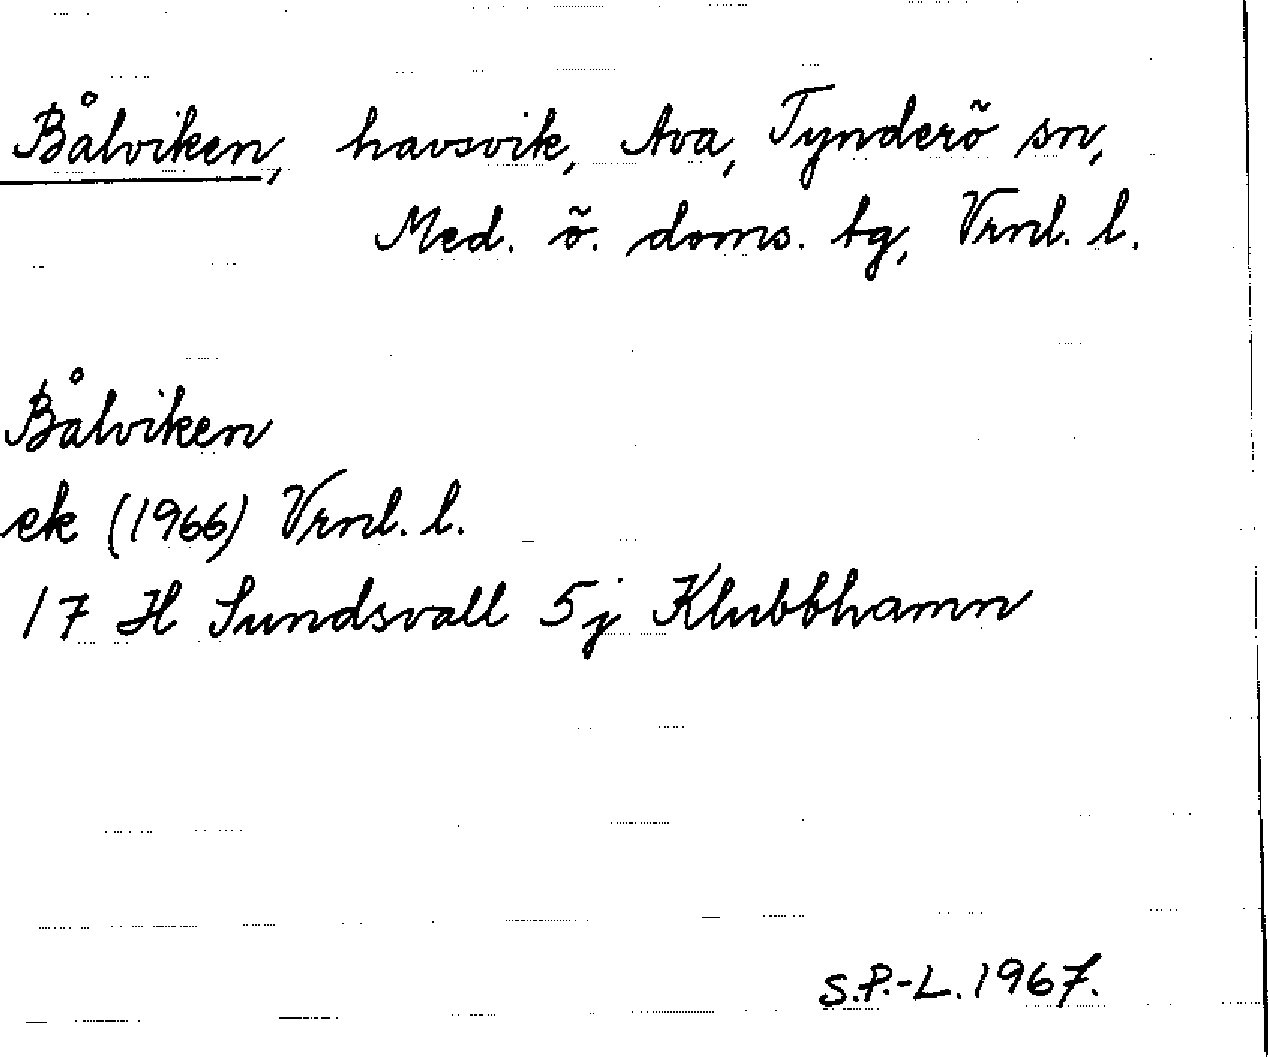 Bålviken, havsvik, Ava, Tynderö sn,
Med. ö. doms. tg, Vrnl. l.
Bålviken
ek (1966) Vrnl. l.
17 H Sundsvall 5j Klubbhamn
S.P.-L. 1967.